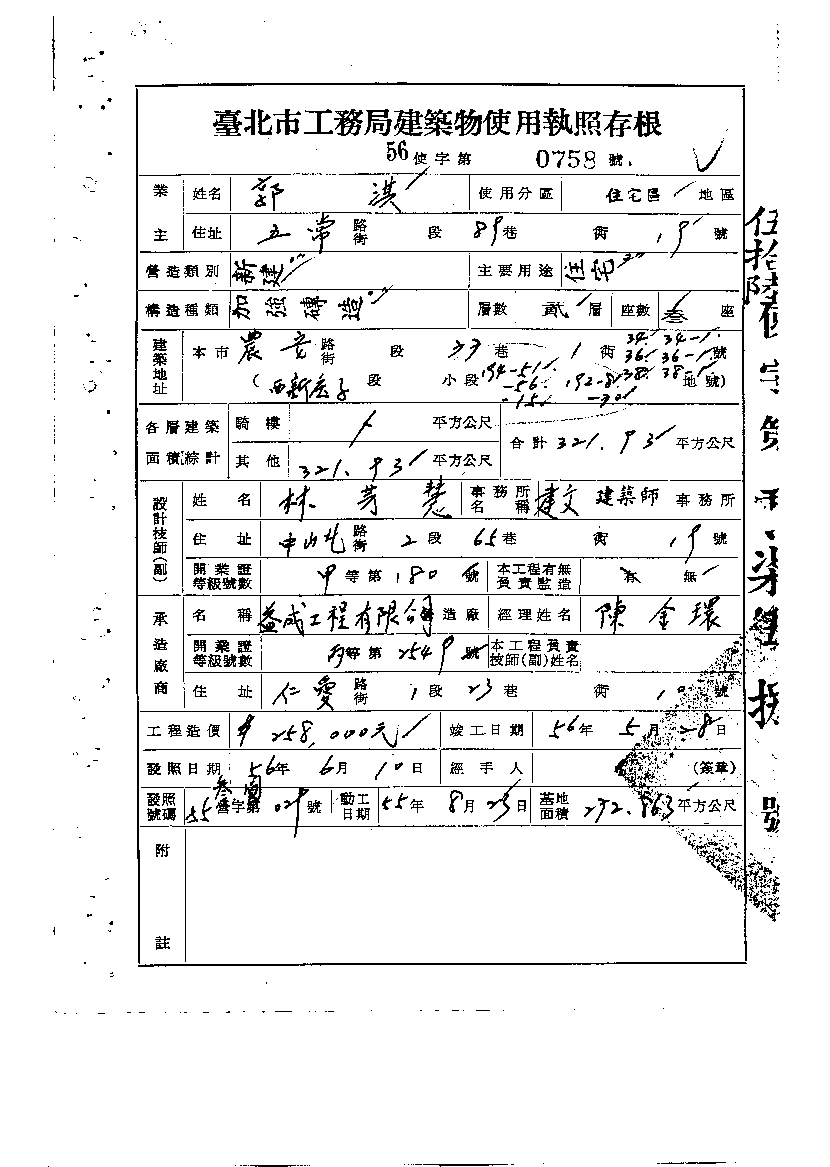 臺北市工務局建築物使用執照存根
56 使字第 0758 號
業主 姓名 郭 淇 使用分區 住宅區 地區
住址 五常 路街 段 89 巷 街 19 號
營造類別 新建 主要用途 住宅
構造種類 加強磚造 層數 貳 層 座數 叁 座
建築地址 本市 農安 路街 段 33 巷 1 街 34 34-1 36 36-1 38 38-1 號
( 西新庄子 段 小段 194-51 -56 -151 192-8 地號)
各層建築面積綜計 騎樓 平方公尺 合計 321.93 平方公尺
其他 321.93 平方公尺
設計技師(副) 姓名 林 芳 慧 事務所名稱 建文 建築師 事務所
住址 中山北 路街 2 段 65 巷 街 19 號
開業證等級號數 甲 等第 180 號 本工程有無負責監造 有 無
承造廠商 名稱 益成工程有限公司 營造廠 經理姓名 陳金環
開業證等級號數 丙 等第 2549 號 本工程負責技師(副)姓名
住址 仁愛 路街 1 段 23 巷 街 10 號
工程造價 $ 258,000元 竣工日期 56 年 5 月 28 日
發照日期 56 年 6 月 10 日 經手人 (簽章)
發照號碼 55 營字第 029 號 動工日期 55 年 8 月 23 日 基地面積 232.863 平方公尺
附註
伍拾陸使字第 柒 號